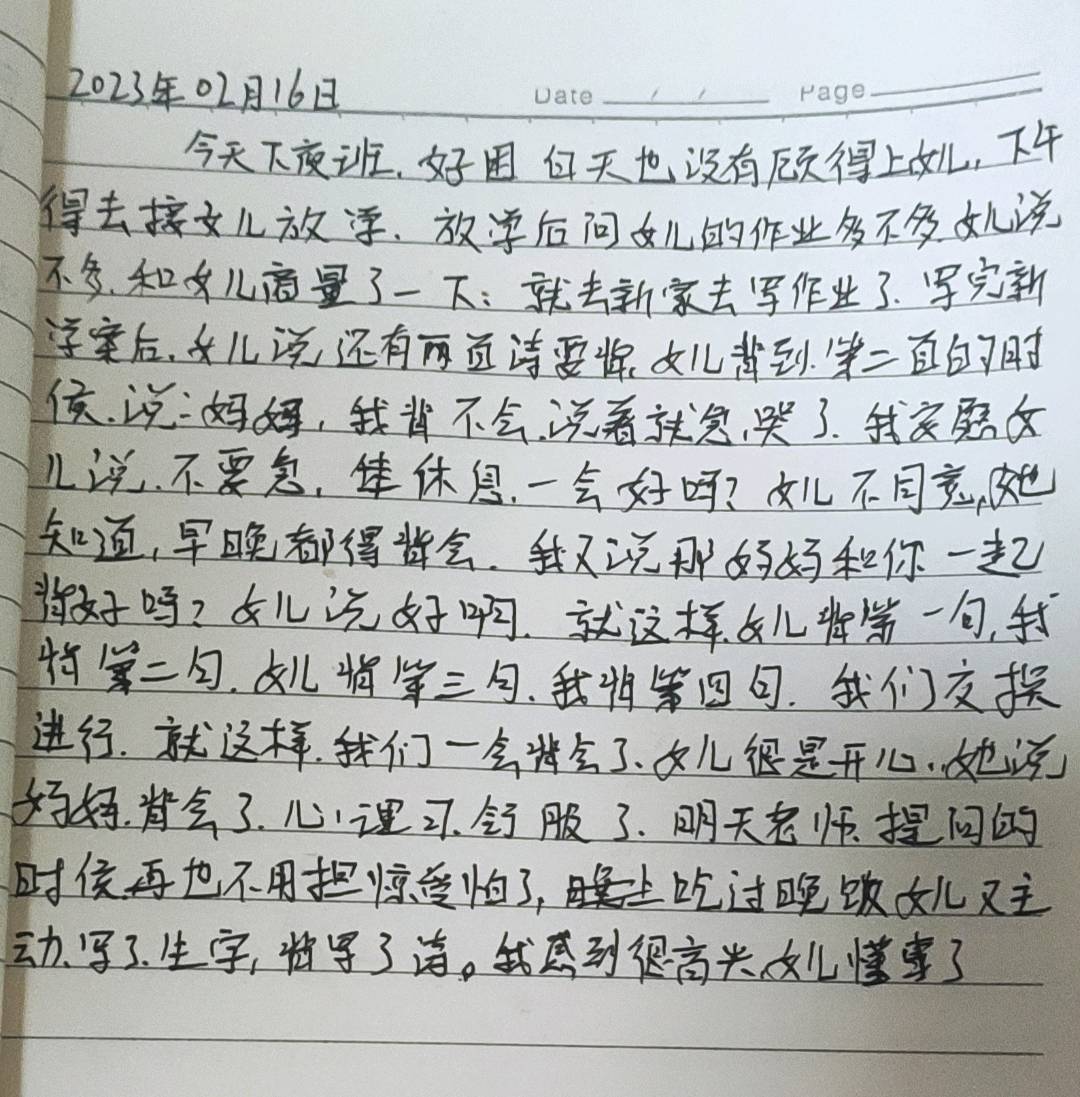 2023年02月16日 Date / / Page
今天下夜班.好困 白天也没有顾得上女儿,下午
得去接女儿放学.放学后问女儿的作业多不多.女儿说
不多.和女儿商量了一下:就去新家去写作业了.写完新
学案后.女儿说,还有两首诗要背,女儿背到第二首的时
候.说:妈妈,我背不会.说着就急哭了.我安慰女
儿说.不要急,休息.一会好吗?女儿不同意,她
知道,早晚都得背会.我又说那妈妈和你一起
背好吗?女儿说好啊.就这样.女儿背第一句,我
背第二句.女儿背第三句.我背第四句.我们交换
进行.就这样.我们一会背会了.女儿很是开心.她说
妈妈.背会了.心理也舒服了.明天老师提问的
时候再也不用担惊受怕了,晚上吃过晚饭女儿又主
动.写了生字,背写了诗。我感到很高兴女儿懂事了